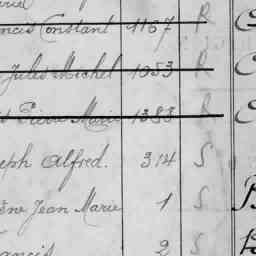 ncis Constant 1167 R
Jules Michel 1053 R
Pierre Marie 1383 R
eph Alfred. 314 S
ène Jean Marie 1 S
rancis 2 S